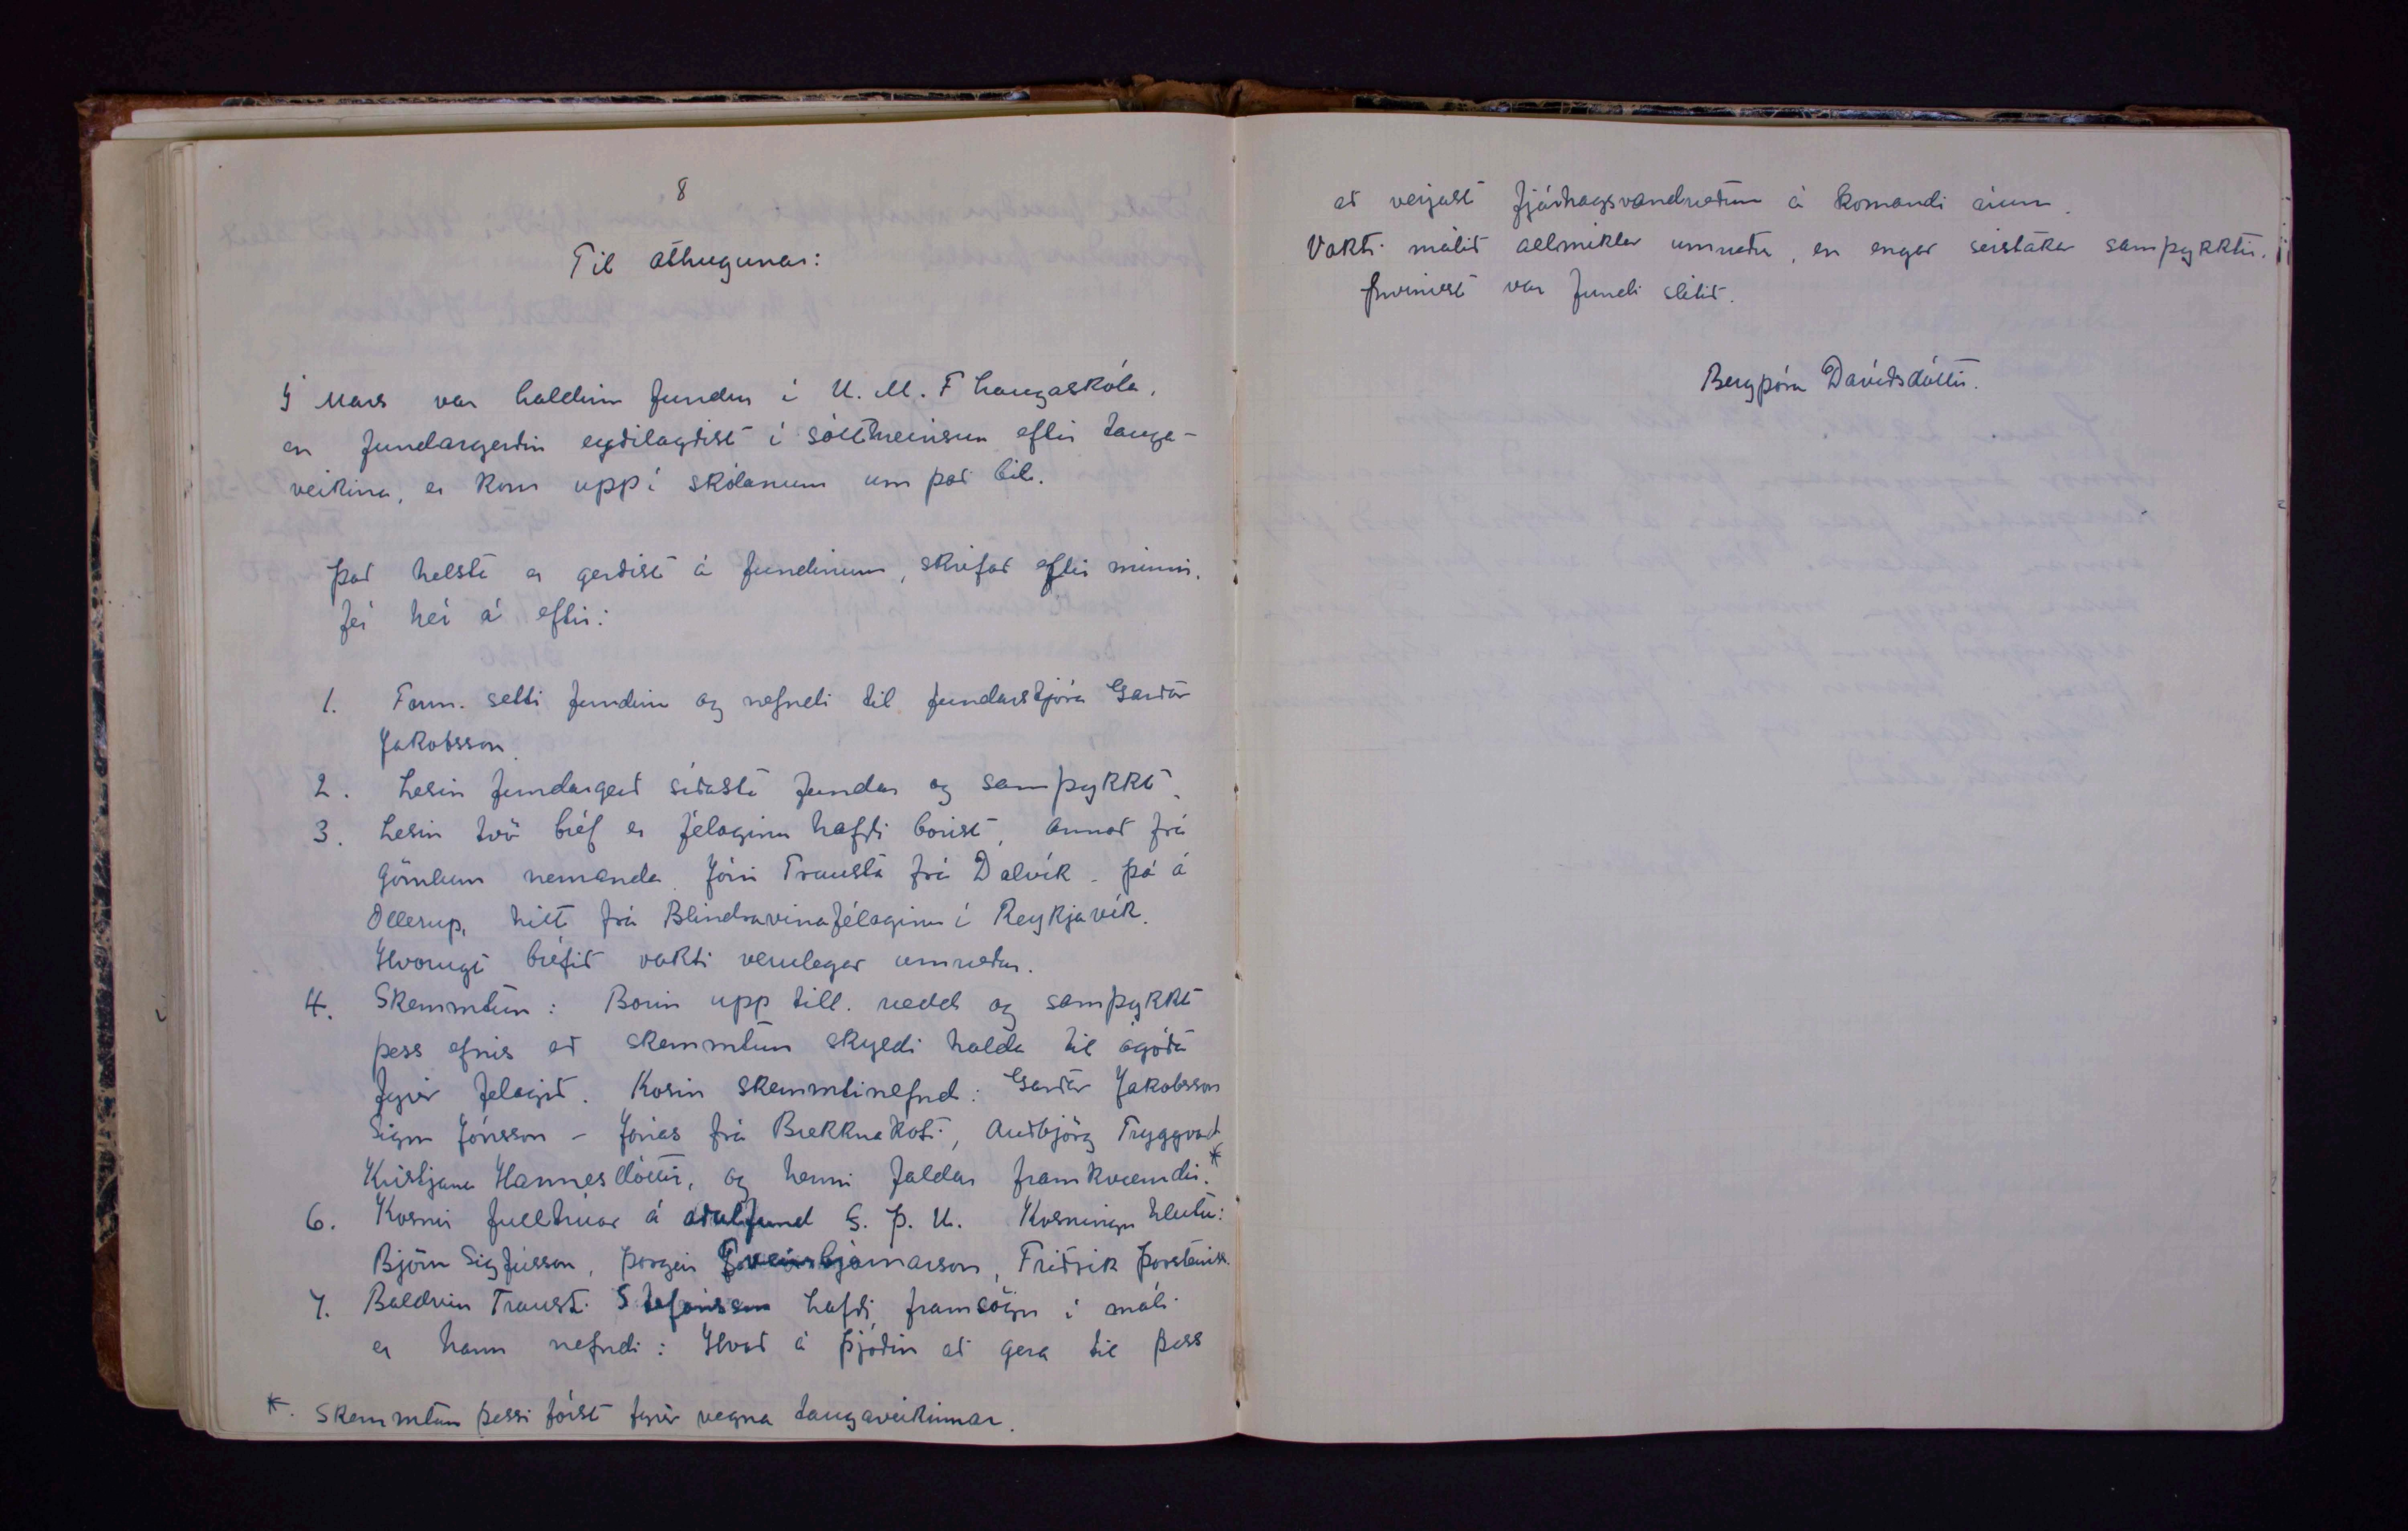 8
Til athugunar:
Í Mars var haldinn fundur í U. M. F Laugaskóla,
en fundargerðin eyðilagðist í sótthreinsun eftir tauga-
veikina, er kom upp í skólanum um það bil.
Það helsta er gerðist á fundinum, skrifað eftir minni,
fer hér á eftir:
1. Form. setti fundinn og nefndi til fundarstjóra Garðar
Jakobsson
2. Lesin fundargerð síðasta fundar og samþykkt.
3. Lesin tvö bréf er félaginu hafði borist, annað frá
gömlum nemanda Jóni Trausta frá Dalvík - þá á
Ollerup, hitt frá Blindravinafélaginu í Reykjavík.
Hvorugt bréfið vakti verulegar umræður.
4. Skemmtun: Borin upp till. rædd og samþykkt
þess efnis að skemmtun skyldi halda til ágóða
fyrir félagið. Kosin skemmtinefnd: Garðar Jakobsson
Sigm Jónsson - Jónas frá Brekknakoti, Auðbjörg Tryggvad
Kristjana Hannesdóttir, og henni faldar framkvæmdir.*
6. Kosnir fulltrúar á aðalfund S. Þ. U. Kosningu hlutu:
Björn Sigfússon, Þorgeir Sveinbjarnarson, Friðrik Þorsteinss.
7. Baldvin Trausti Stefánsson hafði framsögn í máli
er hann nefndi: Hvað á þjóðin að gera til þess
*. Skemmtun þessi fórst fyrir vegna taugaveikinnar.
að verjast fjárhagsvandræðum á komandi árum.
Vakti málið allmiklar umræður, en engar sérstakar samþykktir.
Þvínæst var fundi slitið.
Bergþóra Davíðsdóttir.